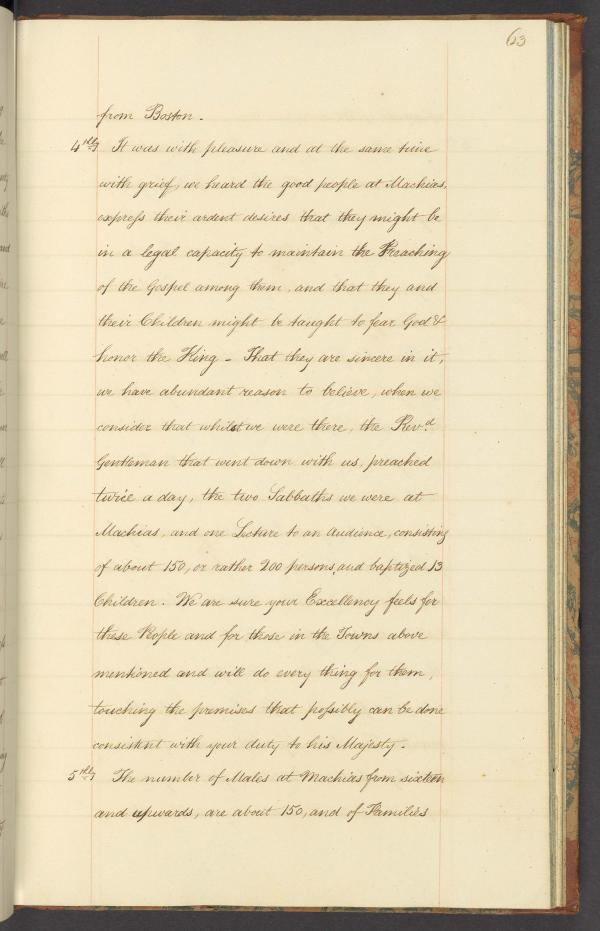 63
from Boston.
4thly It was with pleasure and at the same time
with grief, we heard the good people at Machias,
express their ardent desires that they might be
in a legal capacity to maintain the Preaching
of the Gospel among them, and that they and
their Children might be taught to fear God &
honor the King - That they are sincere in it,
we have abundant reason to believe, when we
consider that whilst we were there, the Revd
Gentleman that went down with us, preached
twice a day, the two Sabbaths we were at
Machias, and one Lecture to an Audience, consisting
of about 150, or rather 200 persons, and baptized 13
Children. We are sure your Excellency feels for
these People and for those in the Towns above
mentioned and will do every thing for them,
touching the premises that possibly can be done
consistent with your duty to his Majesty.
5thly The number of Males at Machias from sixteen
and upwards, are about 150, and of Families